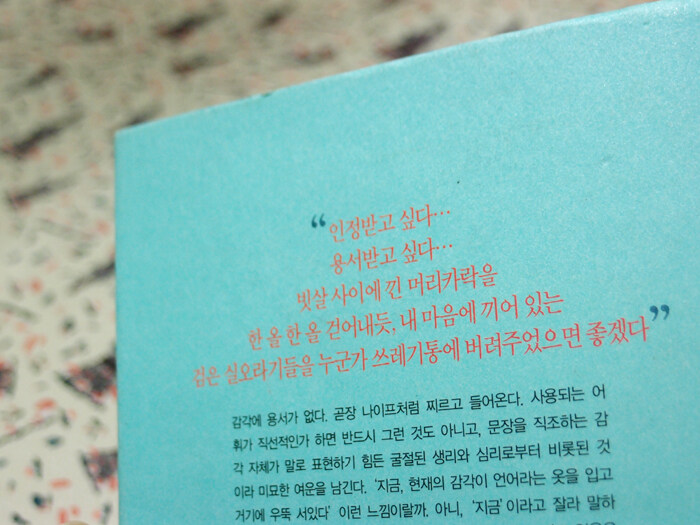 “인정받고 싶다…
용서받고 싶다…
빗살 사이에 낀 머리카락을
한 올 한 올 걷어내듯, 내 마음에 끼어 있는
검은 실오라기들을 누군가 쓰레기통에 버려주었으면 좋겠다”
감각에 용서가 없다. 곧장 나이프처럼 찌르고 들어온다. 사용되는 어
휘가 직선적인가 하면 반드시 그런 것도 아니고, 문장을 직조하는 감
각 자체가 말로 표현하기 힘든 굴절된 생리와 심리로부터 비롯된 것
이라 미묘한 여운을 남긴다. ‘지금, 현재의 감각이 언어라는 옷을 입고
거기에 우뚝 서있다’ 이런 느낌이랄까. 아니, ‘지금’이라고 잘라 말하